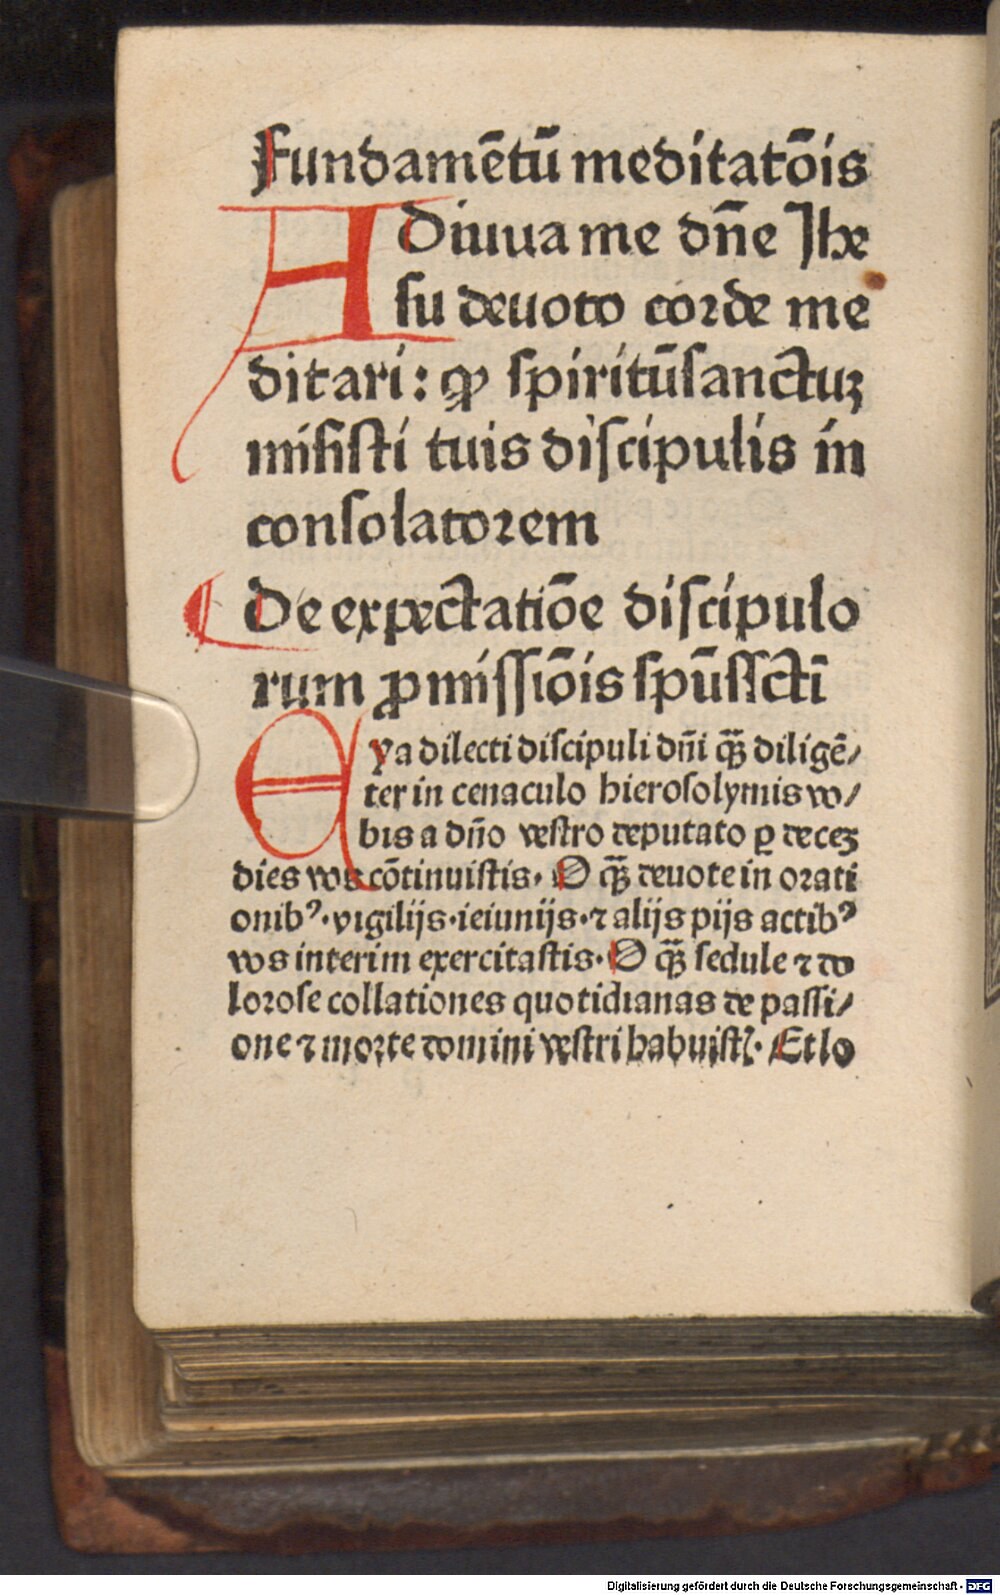 Fundamētū meditatōis
Adiuua me dn̄e Jhe
su deuoto corde me
ditari: ꝙ spiritūsanctuꝫ
misisti tuis discipulis in
consolatorem
¶ De expectatiōe discipulo
rum ꝓmissiōis spūssctī
Eya dilecti discipuli dn̄i qꝫ̄ diligē/
ter in cenaculo hierosolymis vo/
bis a dn̄o vestro deputato ꝑ deceꝫ
dies vos cōtinuistis. O qꝫ̄ deuote in orati
onibꝰ. vigilijs. ieiunijs. ⁊ alijs pijs actibꝰ
vos interim exercitastis. O qꝫ̄ sedule ⁊ do
lorose collationes quotidianas de passi/
one ⁊ morte domini vestri habuistꝭ. Et lo
Digitalisierung gefördert durch die Deutsche Forschungsgemeinschaft - DFG